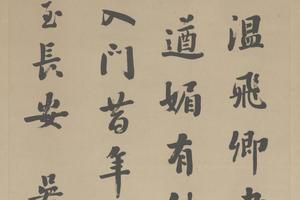 温飛卿
遒媚有
入門昔年
至長安 吳